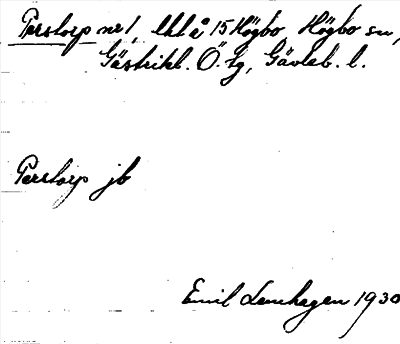 Perstorp nr 1, lht å 15 Högbo, Högbo sn,
Gästrikl. Ö. tg, Gävleb. l.
Perstorp jb
Emil Lenhagen 1930